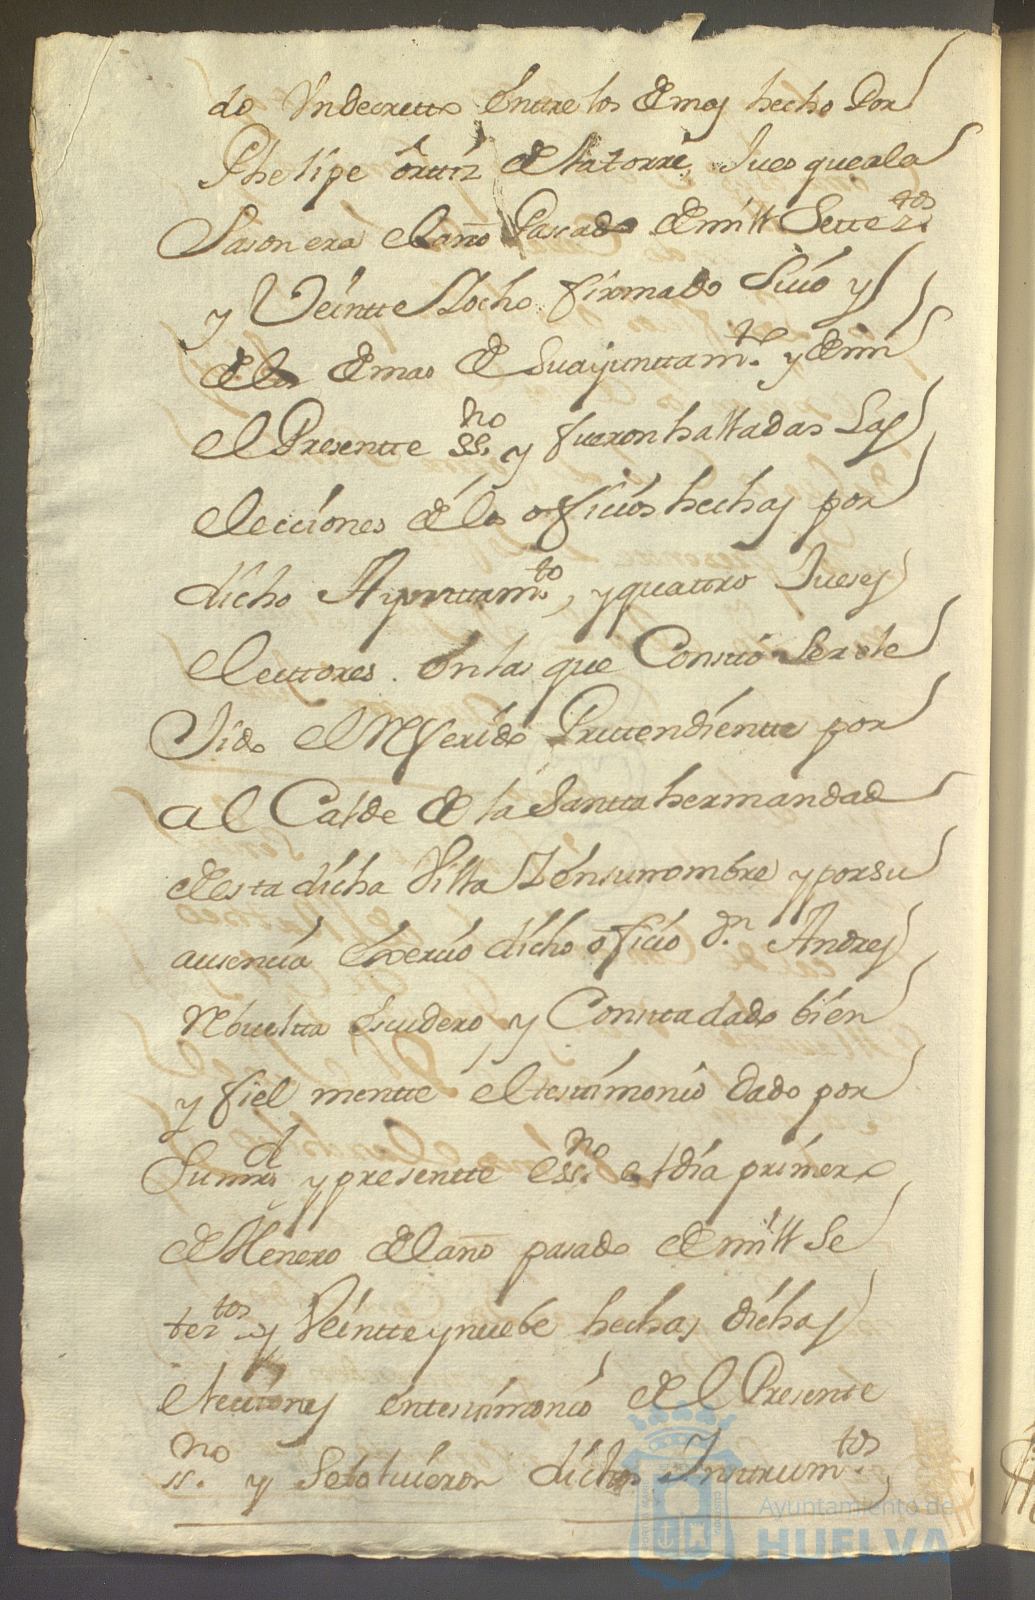 do Vn decretto entre los demas hecho Por
Phelipe ortiz de la torre, Jues que a la
Sason era el año Pasado de mill Settez.tos
y Veintte y ocho firmado Suio y
de los demas de Su ayunttam.to y de mi
el Presentte ss.no y fueron halladas Las
elecciones de los oficios hechas por
dicho Ayunttam.to, y quattro Jueses
electtores. en las que Consttó Ser ele
Jido el Referido Prettendientte por
al Calde de la Santta hermandad
de esta dicha Villa y en su nombre y por su
ausencia exercio dicho oficio d.n Andres
Rebueltta escudero, y Constta dado bien
y fiel mentte el testimonio dado por
Su md y presentte ess.no el dia primero
de Henero del año pasado de mill Se
tez.tos y Veintte y nuebe hechas dichas
elecciones en testimonio de el Presente
ss.no y Se bolvieron dichos Insttrum.tos
Ayuntamiento de
HUELVA